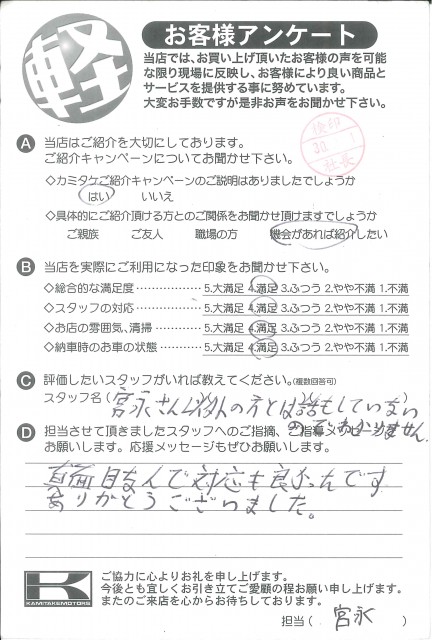 軽
お客様アンケート
当店では、お買い上げ頂いたお客様の声を可能
な限り現場に反映し、お客様により良い商品と
サービスを提供する事に努めています。
大変お手数ですが是非お声をお聞かせ下さい。
検印
30. 1
社長
A 当店はご紹介を大切にしております。
ご紹介キャンペーンについてお聞かせ下さい。
◇カミタケご紹介キャンペーンのご説明はありましたでしょうか
はい いいえ
◇具体的にご紹介頂ける方とのご関係をお聞かせ頂けますでしょうか
ご親族 ご友人 職場の方 機会があれば紹介したい
B 当店を実際にご利用になった印象をお聞かせ下さい。
◇総合的な満足度 ……………… 5.大満足 4.満足 3.ふつう 2.やや不満 1.不満
◇スタッフの対応 ……………… 5.大満足 4.満足 3.ふつう 2.やや不満 1.不満
◇お店の雰囲気、清掃 ………… 5.大満足 4.満足 3.ふつう 2.やや不満 1.不満
◇納車時のお車の状態 ………… 5.大満足 4.満足 3.ふつう 2.やや不満 1.不満
C 評価したいスタッフがいれば教えてください。(複数回答可)
スタッフ名 ( 宮永さん以外の方とは話もしていない )
のでわかりません。
D 担当させて頂きましたスタッフへのご指摘、ご指導メッセージ
お願いします。応援メッセージもぜひお願いします。
真面目なんで対応も良かったです
ありがとうございました。
K
KAMITAKEMOTORS
ご協力に心よりお礼を申し上げます。
今後とも宜しくお引き立てご愛顧の程お願い申し上げます。
またのご来店を心からお待ちしております。
担当 ( 宮永 )